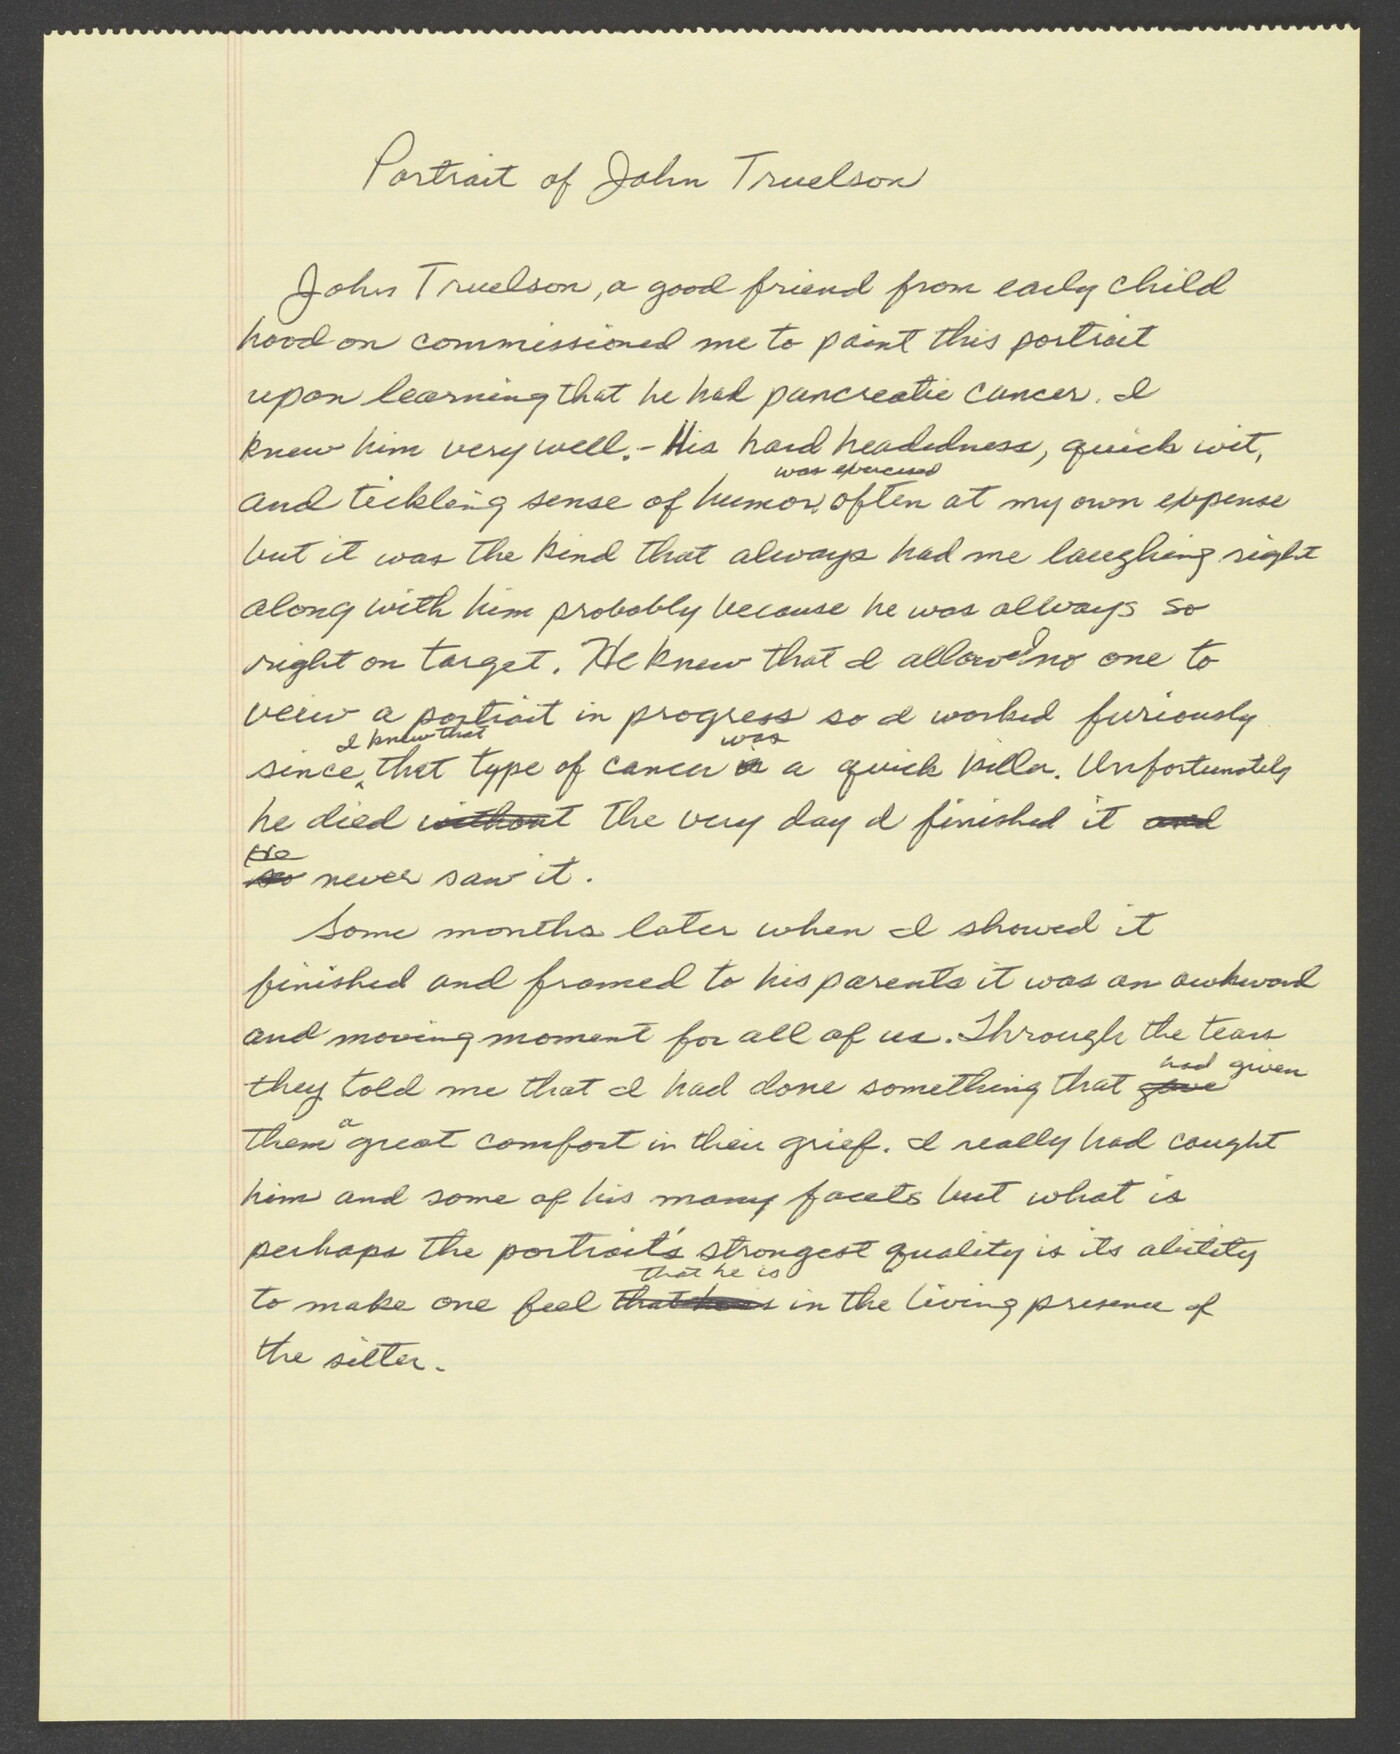 Portrait of John Truelson
John Truelson, a good friend from early child
hood on commissioned me to paint this portrait
upon learning that he had pancreatic cancer. I
knew him very well. - His hard headedness, quick wit,
was exercised
and tickling sense of humor, often at my own expense
but it was the kind that always had me laughing right
along with him probably because he was allways so
right on target. He knew that I allowed no one to
veiw a portrait in progress so I worked furiously
I knew that was
since that type of cancer is a quick killer. Unfortunately
he died without the very day I finished it and
He
so never saw it.
Some months later when I showed it
finished and framed to his parents it was an awkward
and moving moment for all of us. Through the tears
had given
they told me that I had done something that gave
a
them great comfort in their grief. I really had caught
him and some of his many facets but what is
perhaps the portrait's strongest quality is its ability
that he is
to make one feel in the living presence of
the sitter.